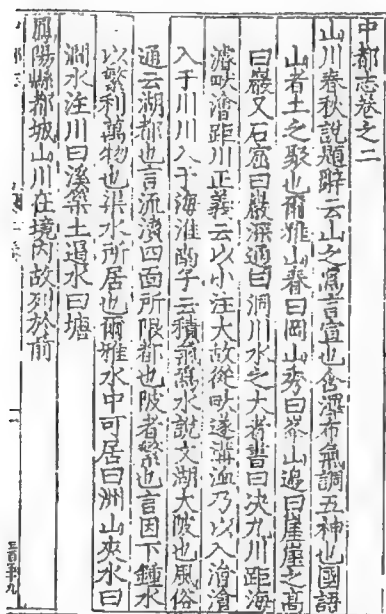 中都志卷之二
山川春秋說題辭云山之爲言宣也含澤布氣調五神也國語
山者土之聚也爾雅山脊曰岡山秀曰峯山邊曰崖崖之高
曰巖又石窟曰巖深通曰洞川水之大者書曰决九川距海
濬畎澮距川正義云以小注大故從畎遂溝洫乃以入澮澮
入于川川入于海淮南子云積氣爲水說文湖大陂也風俗
通云湖都也言流瀆四面所隈都也陂者繁也言因下鍾水
以繁利萬物也渠水所居也爾雅水中可居曰洲山夾水曰
澗水注川曰溪築土遏水曰塘
鳳陽縣都城山川在境內故列於前
三百五十九